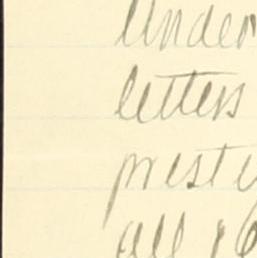 Under
letters
prest
all